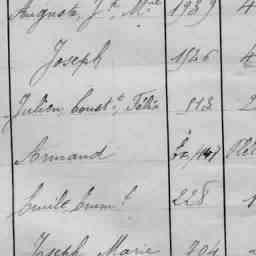 Auguste, J.h, M.el 1939 4
Joseph 1526 4
Julien, Const.t, Félix 813 2
Armand
Emile Emm.l 228 1
Joseph Marie 704